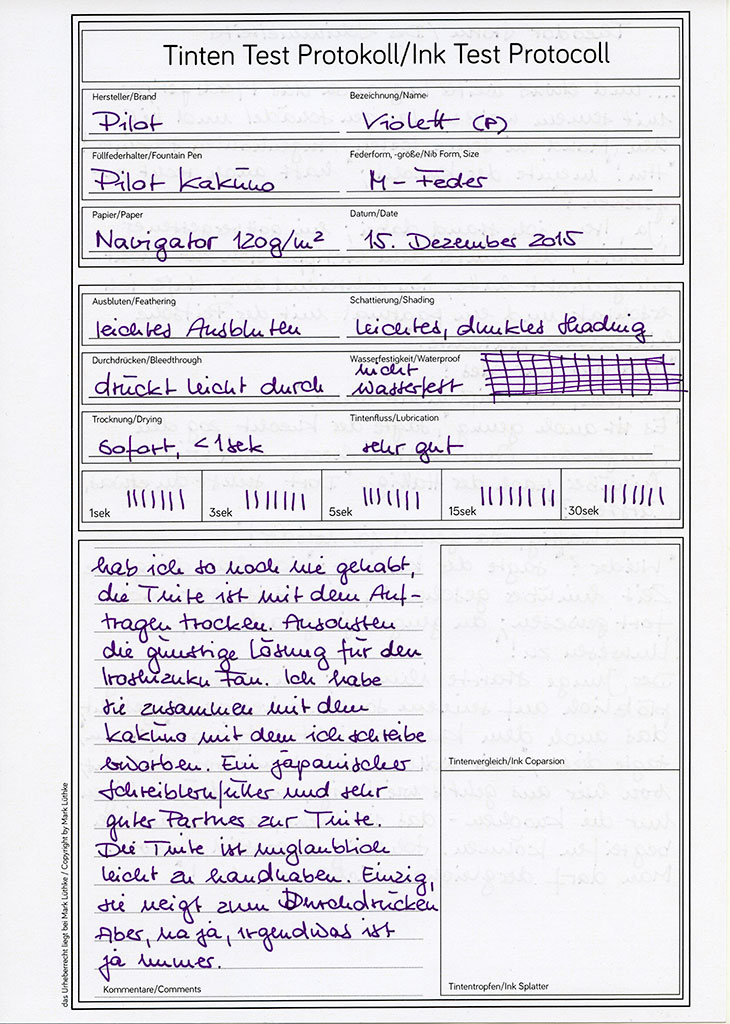 Tinten Test Protokoll/Ink Test Protocoll
Hersteller/Brand
Pilot
Bezeichnung/Name
Violett (P)
Füllfederhalter/Fountain Pen
Pilot Kaküno
Federform, -größe/Nib Form, Size
M-Feder
Papier/Paper
Navigator 120g/m²
Datum/Date
15. Dezember 2015
Ausbluten/Feathering
leichtes Ausbluten
Schattierung/Shading
leichtes, dunkles Shading
Durchdrücken/Bleedthrough
drückt leicht durch
Wasserfestigkeit/Waterproof
nicht
wasserfest
Trocknung/Drying
sofort, <1sek
Tintenfluss/Lubrication
sehr gut
1sek
3sek
5sek
15sek
30sek
hab ich so noch nie gehabt,
die Tinte ist mit dem Auf-
tragen trocken. Ansonsten
die günstige Lösung für den
Iroshizuku Fan. Ich habe
sie zusammen mit dem
Kaküno mit dem ich schreibe
erworben. Ein japanischer
Schreiblernfüller und sehr
guter Partner zur Tinte.
Die Tinte ist unglaublich
leicht zu handhaben. Einzig,
sie neigt zum Durchdrücken
Aber, na ja, irgendwas ist
ja immer.
Kommentare/Comments
Tintenvergleich/Ink Coparsion
Tintentropfen/Ink Splatter
das Urheberrecht liegt bei Mark Lüthke / Copyright by Mark Lüthke